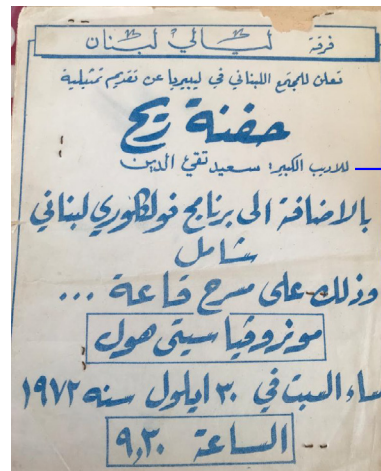 فرقة ليالي لبنان
تعلن للمجتمع اللبناني في ليبيريا عن تقديم تمثيلية
حفنة ريح
للاديب الكبير: سعيد تقي الدين
بالاضافة الى برنامج فولكلوري لبناني
شامل
وذلك على مسرح قاعة ...
مونروڤيا سيتي هول
مساء السبت في ٣٠ ايلول سنه ١٩٧٢
الساعة ٩,٣٠